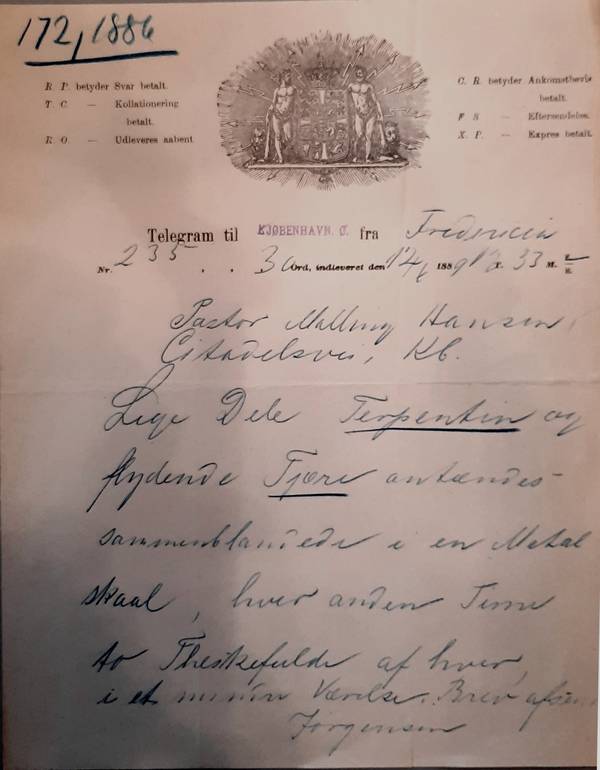 172, 1886
R. P. betyder Svar betalt.
T. C. — Kollationering
betalt.
R. O. — Udleveres aabent.
C. R. betyder Ankomstbevis
betalt.
F. S. — Eftersendelse.
X. P. — Expres betalt.
Telegram til KJØBENHAVN. Ø. fra Fredericia
Nr. 235 . . 30 Ord, indleveret den 12/6 1889 33 M.
Pastor Malling Hansen,
Citadelsvei, Kb.
Lige Dele Terpentin og
flydende Tjære antændes
sammenblandede i en Metal
skaal, hver anden Time
to Theskefulde af hver,
i et Værelse. Brev
Jorgensen